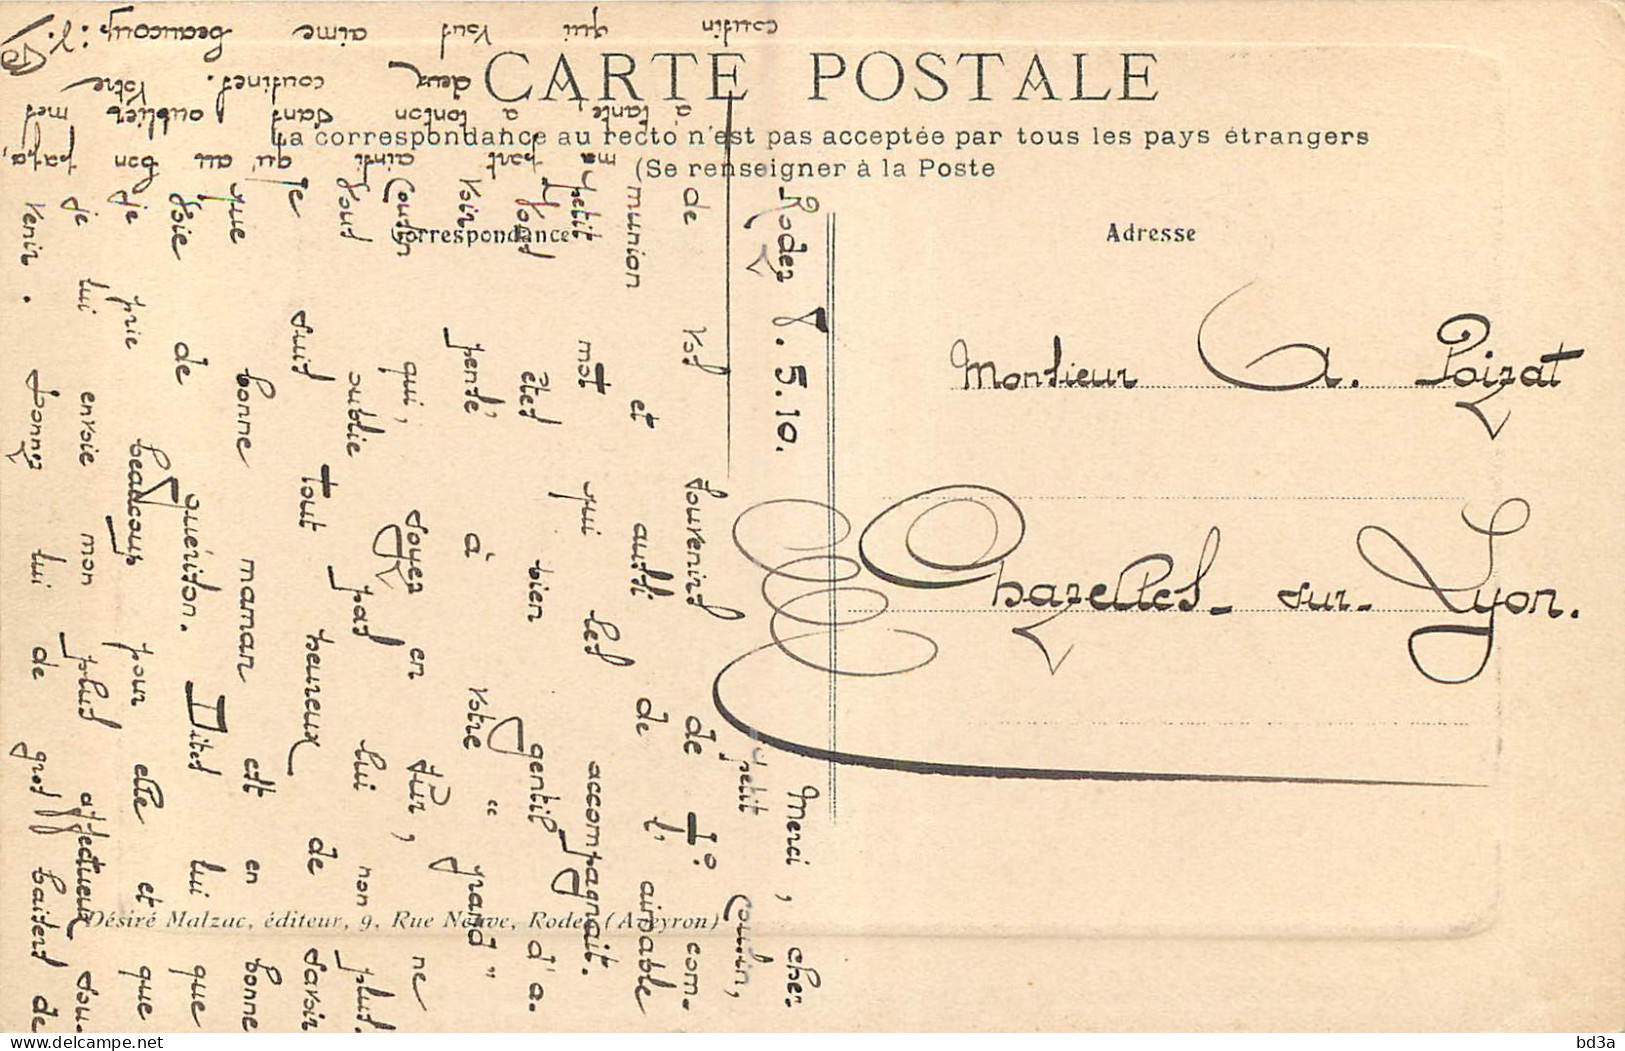 CARTE POSTALE
La correspondance au recto n'est pas acceptée par tous les pays étrangers
(Se renseigner à la Poste
Correspondance
Adresse
Monsieur A. Poizat
Chazelles-sur-Lyon.
Rodez 8.5.10.
Merci, cher
petit cousin,
de vos souvenirs de 1º com-
munion et aussi de l'aimable
petit mot qui les accompagnait.
Vous êtes bien gentil d'a-
voir pensé, à votre "grand"
cousin qui, soyez en sûr, ne
vous oublie pas lui non plus.
Je suis tout heureux de savoir
que bonne maman est en bonne
voie de guérison. Dites lui que
je prie beaucoup pour elle et que
je lui envoie mon plus affectueux sou-
venir. Donnez lui de gros baisers de
ma part ainsi qu'au bon papa,
à tante, à tonton sans oublier mes
deux cousines. Votre
cousin qui vous aime beaucoup:
Désiré Malzac, éditeur, 9, Rue Neuve, Rodez (Aveyron)
bd3a
www.delcampe.net